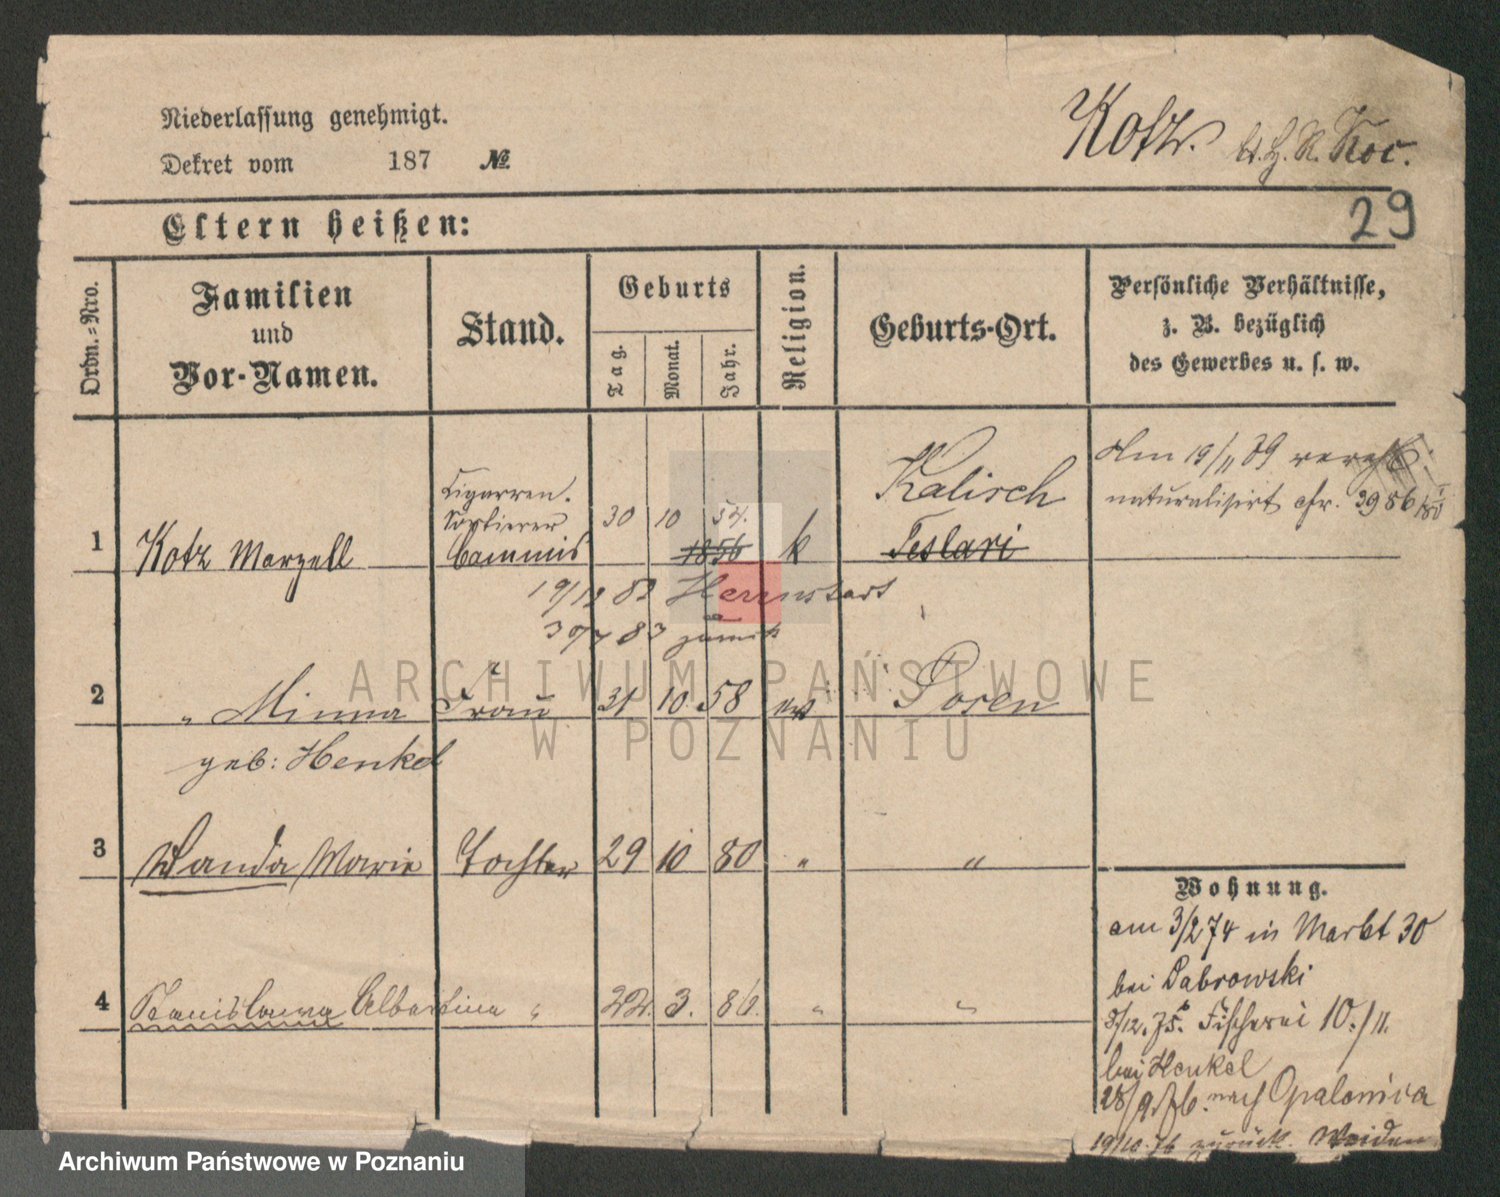 Niederlassung genehmigt.
Dekret vom 187 №
Kotz.
Koc.
29
Eltern heißen:
Ordn.=Nro.
Familien
und
Vor-Namen.
Stand.
Geburts
Tag.
Monat.
Jahr.
Religion.
Geburts-Ort.
Persönliche Verhältnisse,
z. B. bezüglich
des Gewerbes u. s. w.
Am 19/11 89
naturalisirt cfr. 3986
1 Kotz Marzell
Cigarren.
Sortierer
Commis
30 10 54.
1856
k
Kalisch
Teslari
19/12 82 Herrnstadt
30/7 83 zurück
2 " Minna Frau 31 10 58 Posen
geb: Henkel
3 Wanda Marie Tochter 29 10 80 " "
4 Stanislawa Albertina " 22. 3. 86. " "
Wohnung.
am 3/2 74 in Markt 30
bei Dabrowski
8/12. 75. Fischerei 10./11.
bei Henkel
28/9. 76. nach Opalenica
19/10. 76 zurück.
ARCHIWUM PAŃSTWOWE
W POZNANIU
Archiwum Państwowe w Poznaniu